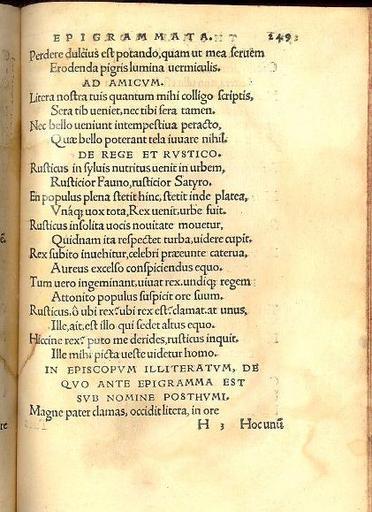 EPIGRAMMATA. 249
Perdere dulcius est potando, quam ut mea seruem
Erodenda pigris lumina uermiculis.
AD AMICVM.
Litera nostra tuis quantum mihi colligo scriptis,
Sera tib ueniet, nec tibi sera tamen.
Nec bello ueniunt intempestiua peracto,
Quæ bello poterant tela iuuare nihil.
DE REGE ET RVSTICO.
Rusticus in syluis nutritus uenit in urbem,
Rusticior Fauno, rusticior Satyro.
En populus plena stetit hinc, stetit inde platea,
Vnáq; uox tota, Rex uenit, urbe fuit.
Rusticus insolita uocis nouitate mouetur,
Quidnam ita respectet turba, uidere cupit.
Rex subito inuehitur, celebri præeunte caterua,
Aureus excelso conspiciendus equo.
Tum uero ingeminant, uiuat rex, undiq; regem
Attonito populus suspicit ore suum.
Rusticus, ô ubi rex? ubi rex est? clamat, at unus,
Ille, ait, est illo qui sedet altus equo.
Hiccine rex? puto me derides, rusticus inquit,
Ille mihi picta ueste uidetur homo.
IN EPISCOPVM ILLITERATVM, DE
QVO ANTE EPIGRAMMA EST
SVB NOMINE POSTHVMI.
Magne pater clamas, occidit litera, in ore
H 3 Hoc unũ